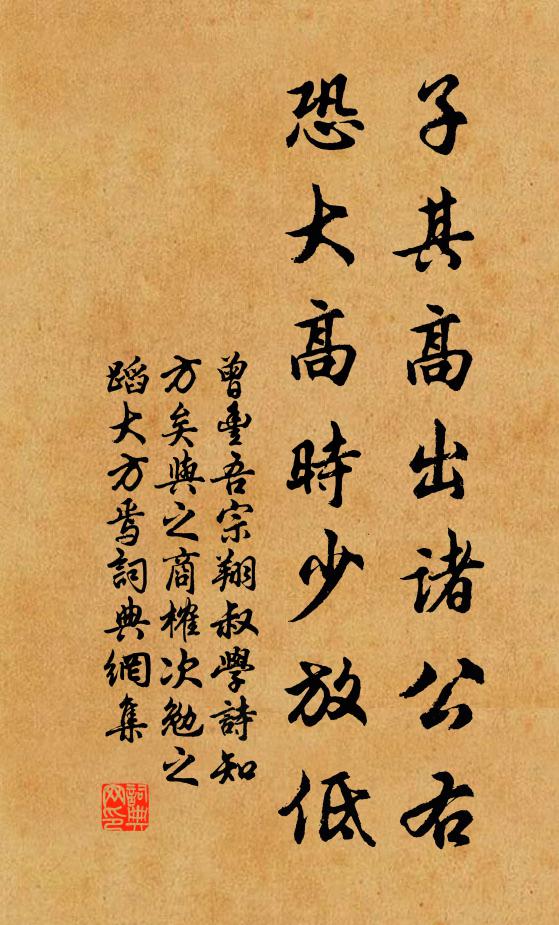 子其高出諸公右
恐大高時少放低
曾豐吾宗翔叔學詩知
方矣與之商榷次勉之
蹈大方焉詞典網集
詞典網印